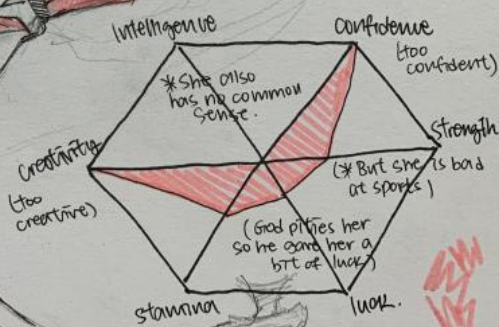 Intelligence
confidence
(too
confident)
*She also
has no common
sense.
strength
(* But she is bad
at sports)
creativity
(too
creative)
(God pities her
so he gave her a
bit of luck)
stamina
luck.